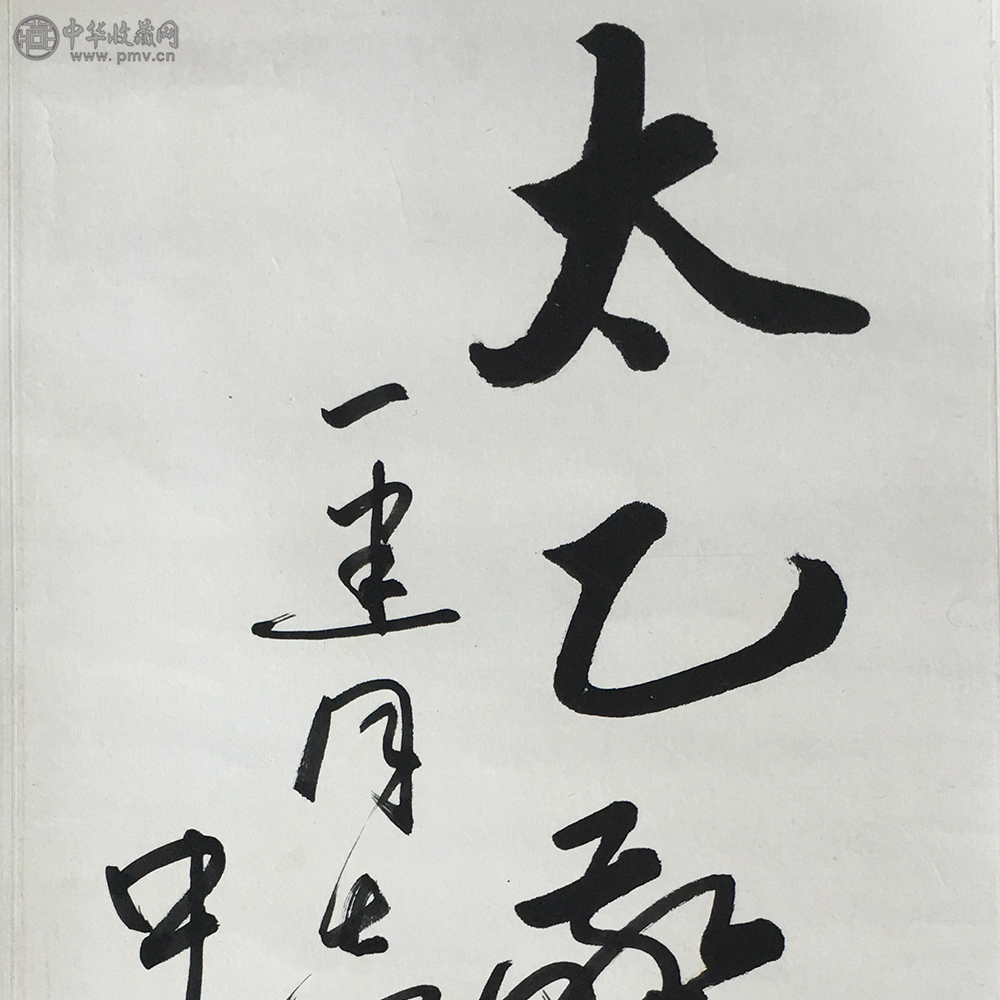 中华收藏网
www.pmv.cn
太乙
一建同志
中